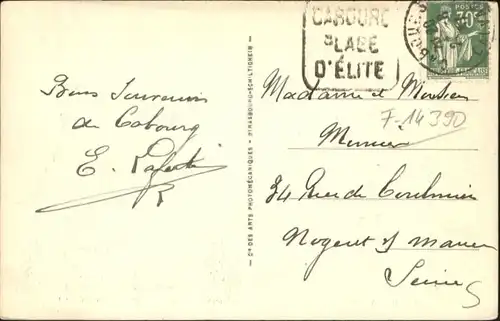 CABOURG
PLAGE
D'ÉLITE
POSTES
30c
Bons Souvenirs
de Cabourg
E.
Cie DES ARTS PHOTOMÉCANIQUES - STRASBOURG-SCHILTIGHEIM
Madame et Monsieur
F-14390
Meunier
34 Rue de Coulmiers
Nogent s/ Marne
Seine